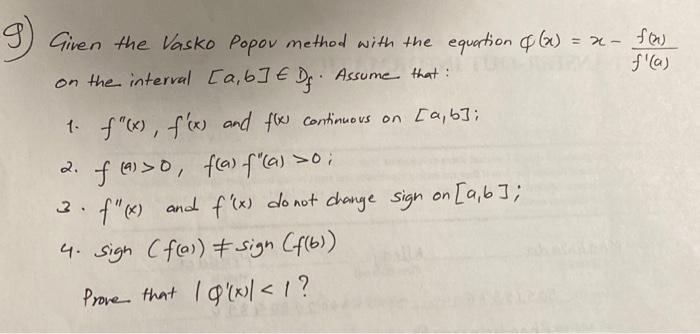 9) Given the Vasko Popov method with the equation φ(x) = x - f(x)/f'(a)
on the interval [a,b] ∈ D_f. Assume that:
1. f"(x), f'(x) and f(x) continuous on [a,b];
2. f(a)>0, f(a) f"(a) >0;
3. f"(x) and f'(x) do not change sign on [a,b];
4. sign (f(a)) ≠ sign (f(b))
Prove that |φ'(x)| < 1?